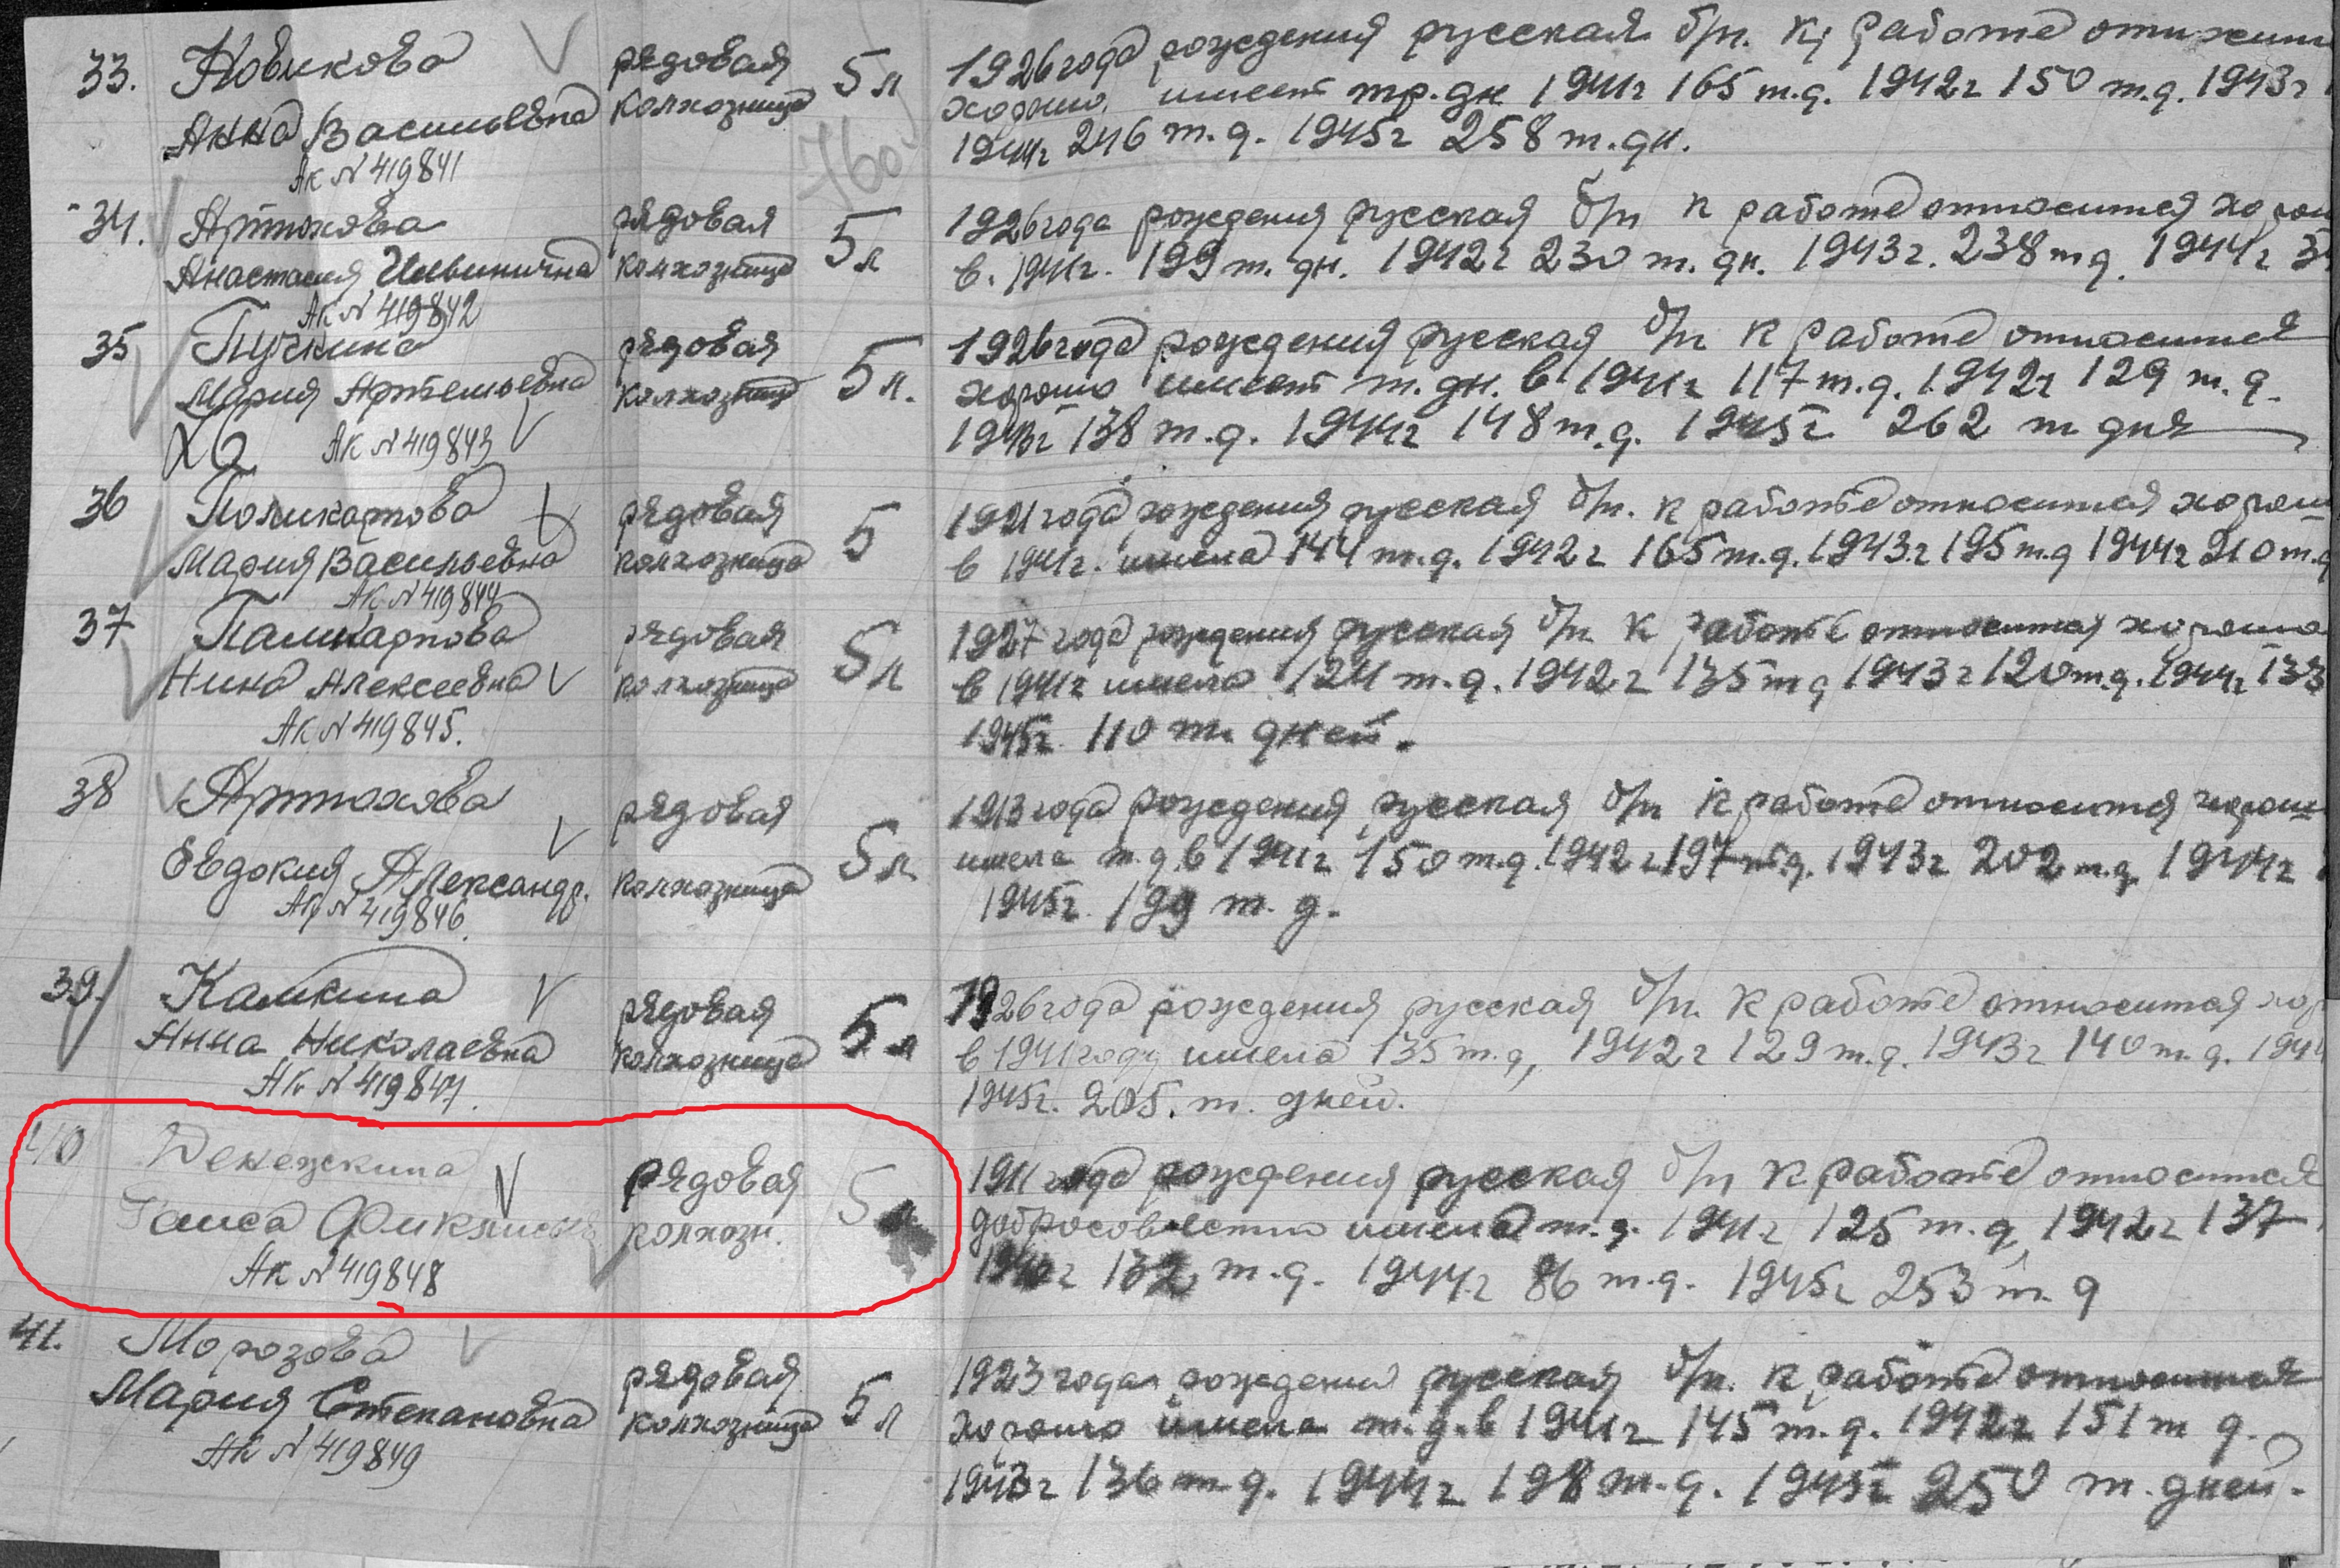 33. Новикова
Анна Васильевна
Ак N 419841
рядовая
колхозница
5 л
1926 года рождения русская б/п. к работе относится
хорошо, имеет тр. дн 1941г 165 т.д. 1942г 150 т.д. 1943г
1944г 246 т.д. 1945г 258 т. дн.
760
34. Артюхова
Анастасия
Ак N 419842
рядовая
колхозница
5 л
1926 года рождения русская б/п к работе относится хорош
в. 1941г. 199 т. дн. 1942г 230 т. дн. 1943г. 238 т д. 1944г
35 Пучкина
Мария Артемьевна
Ак N 419843
рядовая
колхозниц
5 л.
1926 года рождения русская б/п к работе относится
хорошо имеет т. дн. в 1941г 117 т.д. 1942г 129 т.д.
1943г 138 т.д. 1944г 148 т.д. 1945г 262 т дня
36 Поликарпова
Мария Васильевна
Ак N 419844
рядовая
колхозница
5
1921 года рождения русская б/п. к работе относится хорош
в 1941г. имела 144 т.д. 1942г 165 т.д. 1943г 195 т.д 1944г 210 т.д
37 Паликарпова
Нина Алексеевна
Ак N 419845.
рядовая
колхозница
5 л
1927 года рождения русская б/п к работе относится хорошо
в 1941г имела 124 т.д. 1942г 135 т д 1943г 120 т.д. 1944г 133
1945г. 110 т. дней.
38 Артюхова
Евдокия Александр.
Ак N 419846.
рядовая
колхозница
5 л
1913 года рождения русская б/п к работе относится хорош
имела т.д. в 1941г 150 т.д. 1942г 197 т.д. 1943г 202 т.д. 1944г
1945г. 199 т. д.
39. Камкина
Анна Николаевна
Ак N 419847.
рядовая
колхозница
5 л
1926 года рождения русская б/п. к работе относится хор
в 1941 году имела 135 т.д, 1942г 129 т.д. 1943г 140 т.д. 194
1945г. 205. т. дней.
40 Денежкина
Таиса
Ак N 419848
рядовая
колхозн.
5 л
1911 года рождения русская б/п к работе относится
добросовестно имела т.д. 1941г 125 т.д, 1942г 137
1943г 132 т.д. 1944г 86 т.д. 1945г 253 т. д
41. Морозова
Мария Степановна
Ак N 419849
рядовая
колхозница
5 л
1923 года рождения русская б/п. к работе относится
хорошо имела т.д. в 1941г 145 т.д. 1942г 151 т д.
1943г 136 т.д. 1944г 198 т.д. 1945г 250 т. дней.